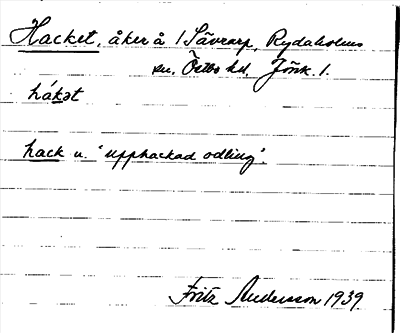 Hacket, åker å 1 Sävrarp, Rydaholms
sn. Östbo hd. Jönk. l.
hákət
hack n. "upphackad odling".
Fritz Andersson 1939